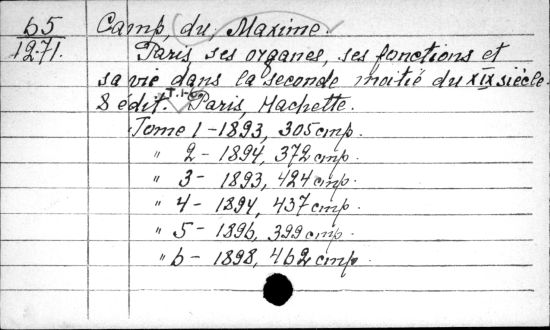 65
1271.
Camp, du, Maxime.
Paris, ses organes, ses fonctions et
sa vie dans la seconde moitié du XIX siècle.
8 édit. T. 1-6 Paris, Hachette.
Tome 1 - 1893, 305 стр.
" 2 - 1894, 372 стр.
" 3 - 1893, 424 стр.
" 4 - 1894, 437 стр.
" 5 - 1896, 399 стр.
" 6 - 1898, 462 стр.